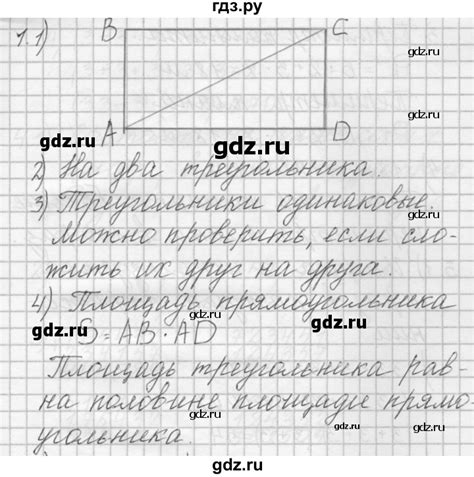 гдз.ру
1.1)
B
C
gdz.ru
A
gdz.ru
D
2) На два треугольника.
gdz.ru
3) Треугольники одинаковые.
Можно проверить, если сло-
жить их друг на друга.
4) Площадь прямоугольника
gdz.ru
S = AB · AD
gdz.ru
Площадь треугольника рав-
на половине площади прямо-
угольника.
gdz.ru